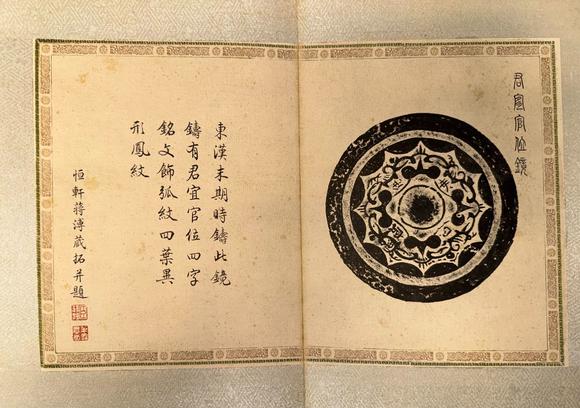 君宜官位鏡
東漢末期時鑄此鏡
鑄有君宜官位四字
銘文飾弧紋四葉異
形鳳紋
恒軒蔣溥藏拓并題